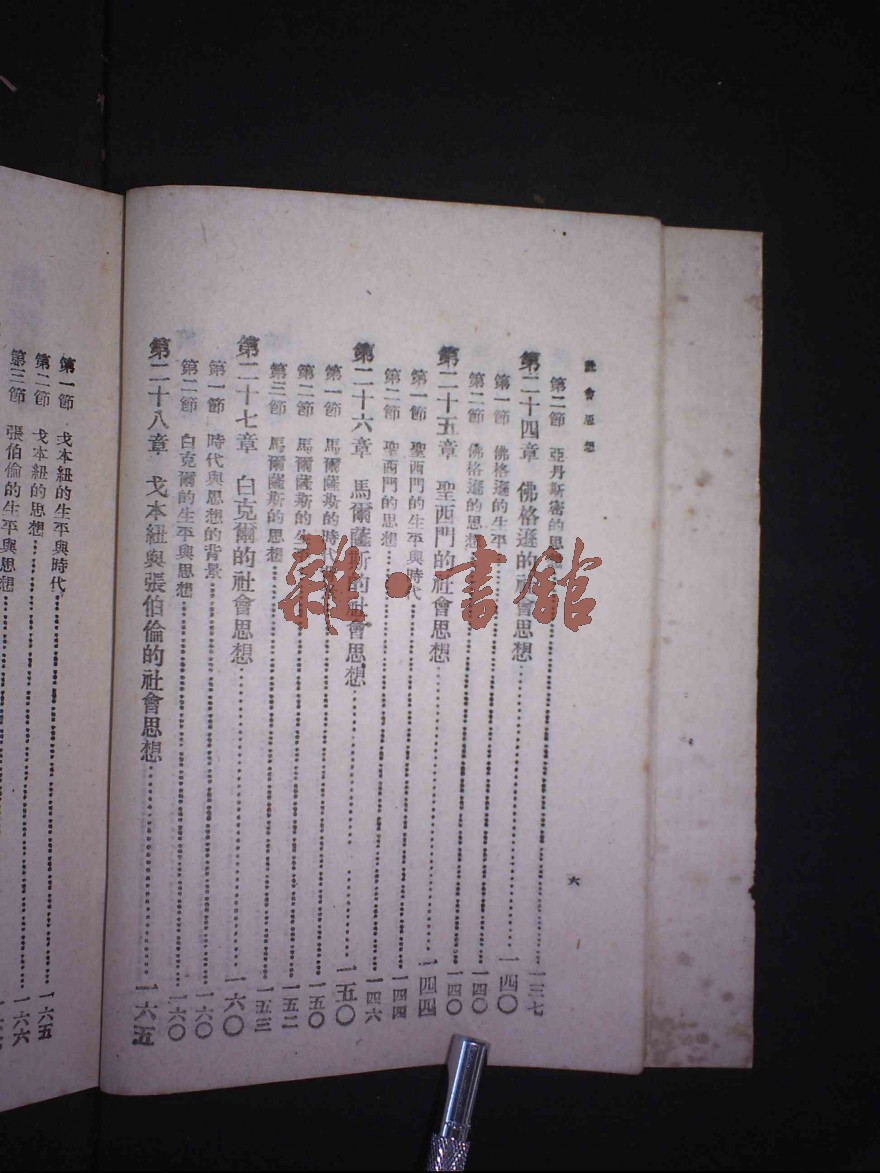 社會思想
六
第二節 亞丹斯密的思想 一三七
第二十四章 佛格遜的社會思想 一四〇
第一節 佛格遜的生平 一四〇
第二節 佛格遜的思想 一四〇
第二十五章 聖西門的社會思想 一四四
第一節 聖西門的生平與時代 一四四
第二節 聖西門的思想 一四六
第二十六章 馬爾薩斯的社會思想 一五〇
第一節 馬爾薩斯的時代 一五〇
第二節 馬爾薩斯的生 一五二
第三節 馬爾薩斯的思想 一五三
第二十七章 白克爾的社會思想 一六〇
第一節 時代與思想的背景 一六〇
第二節 白克爾的生平與思想 一六〇
第二十八章 戈本紐與張伯倫的社會思想 一六五
第一節 戈本紐的生平與時代 一六五
第二節 戈本紐的思想 一六六
第三節 張伯倫的生平與思想
雜·書館